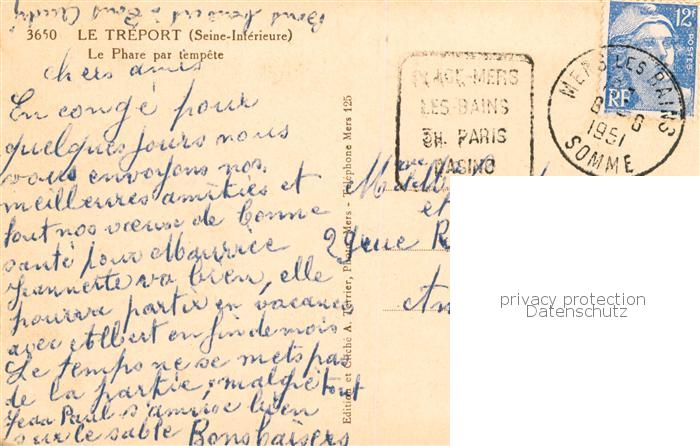 Bons baisers à Bons Claudy
3650 LE TRÉPORT (Seine-Inférieure)
Le Phare par tempête
chers amis
En congé pour
quelques jours nous
vous envoyons nos
meilleures amitiés et
tout nos vœux de bonne
santé pour Maurice
Jeannette va bien, elle
pourra partir en vacances
avec Albert en fin de mois
Le temps ne se mets pas
de la partie, malgré tout
Jean Paul s'amuse bien
sur le sable Bons baisers
Edition et Cliché A. Terrier, Photo, Mers - Téléphone Mers 125
PLAGE-MERS
LES-BAINS
3H. PARIS
CASINO
12F
POSTES
RF
MERS LES BAINS
8-8
1951
SOMME
et
29 rue
privacy protection
Datenschutz